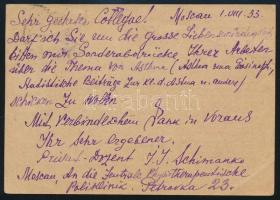 Sehr geehrter Collegae! Moscau 1.VIII.33.
Darf ich Sie um die grosse Liebenswürdigkeit
bitten mit Sonderabdrücke Ihrer Arbeiten
über die Thema von Asthma (Asthma und
Statistische Beiträge zur Kl. d. Asthma u. anders)
schicken zu wollen
Mit verbindlichem Dank in Voraus
Ihr sehr ergebener
Privat-Dozent I. I. Schimanko
Moscau An die Zentrale Physiotherapeutische
Poliklinik. Petrovka 25.